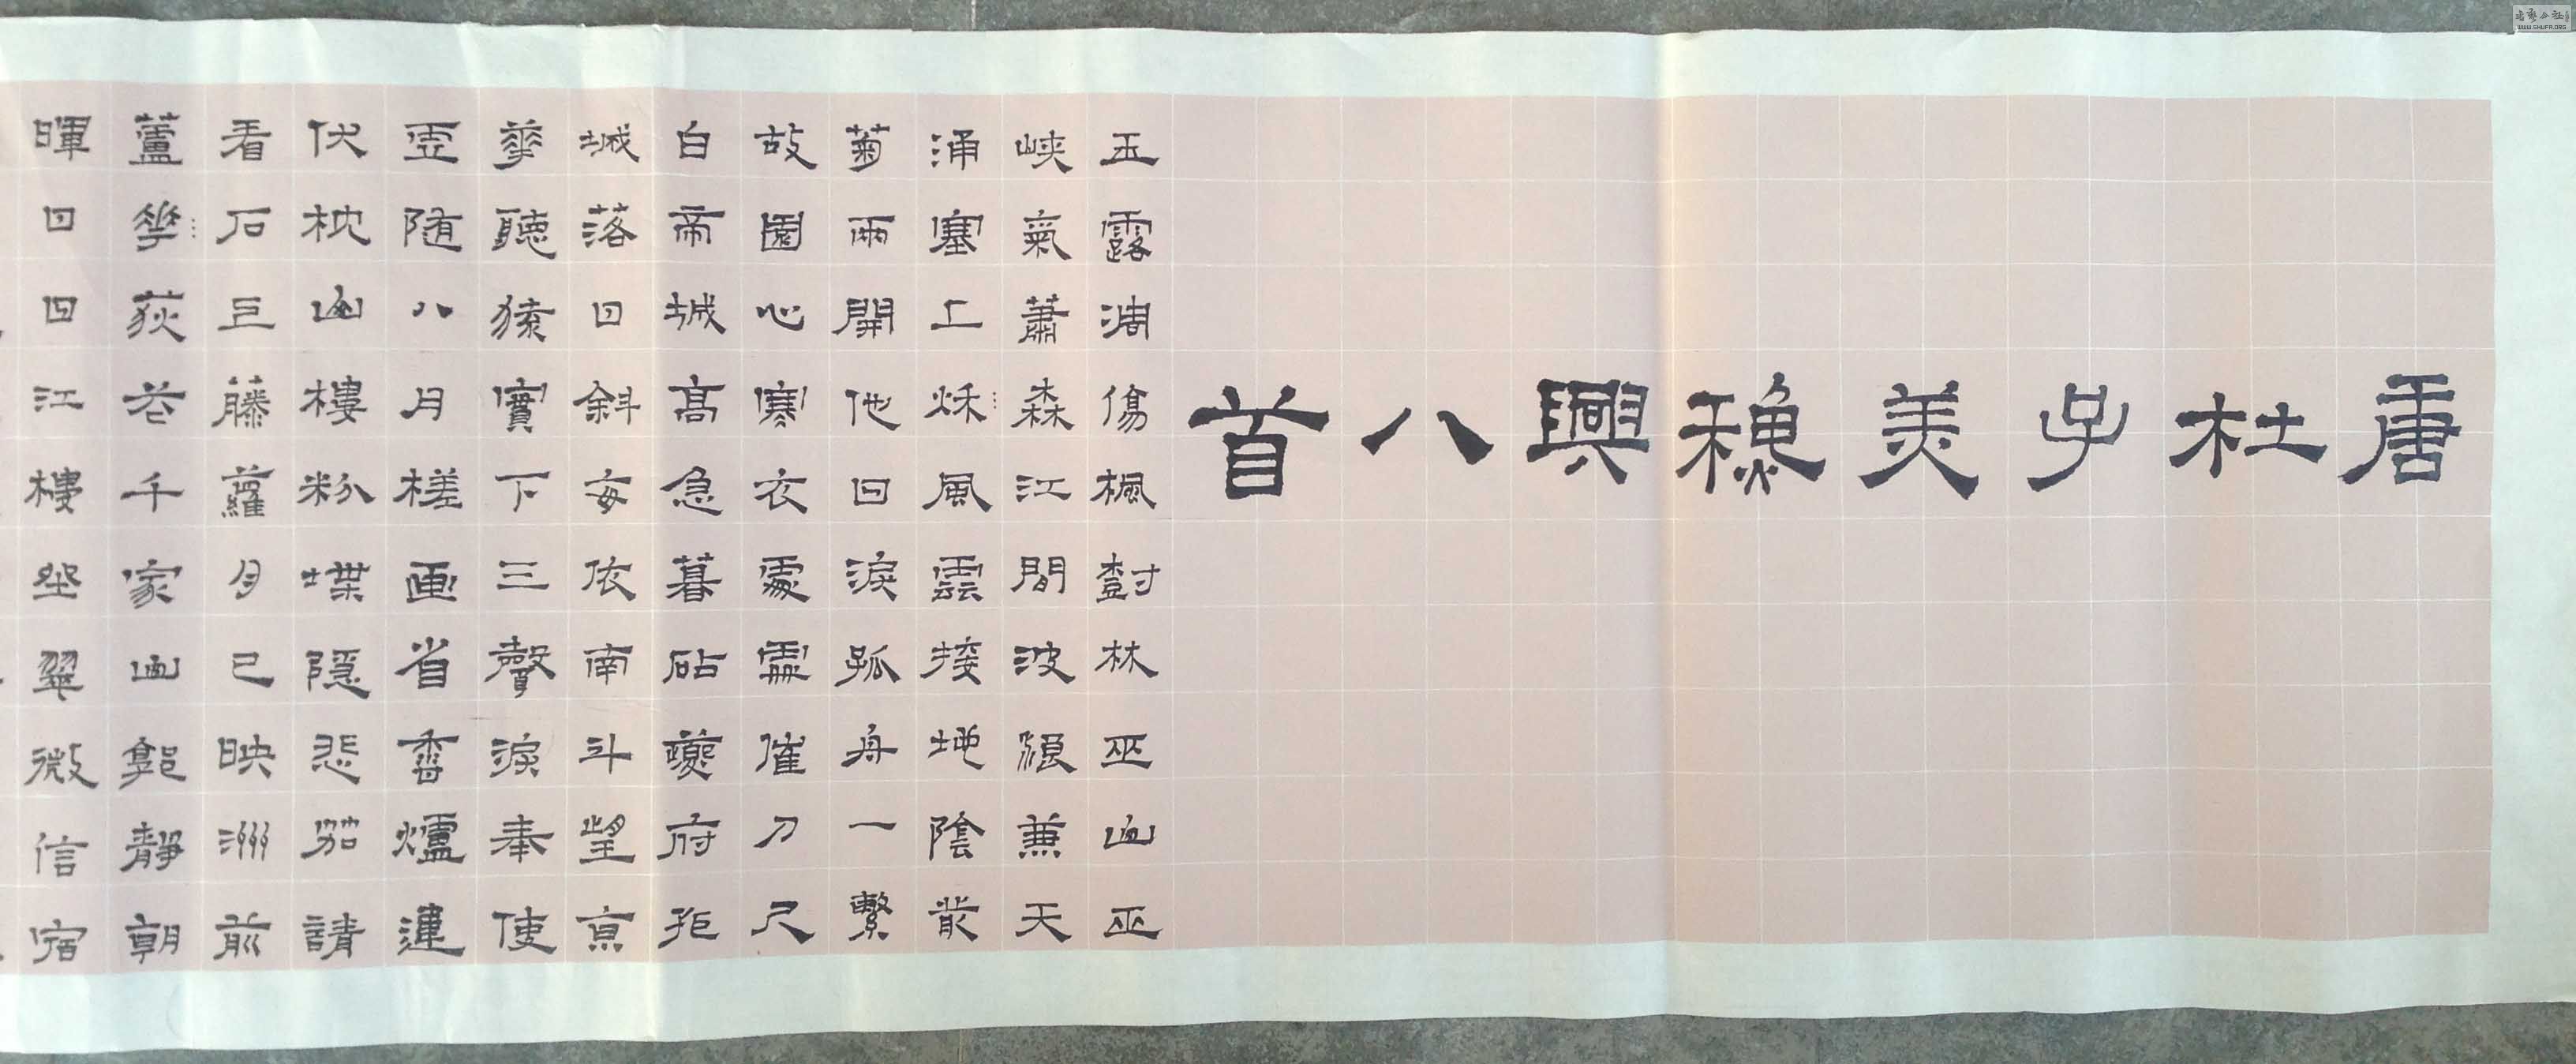 唐杜子美穐興八首
玉露凋傷楓對林巫山巫
峽氣蕭森江間波浪兼天
涌塞上秌風雲接地陰叢
菊兩開他日淚孤舟一繫
故園心寒衣處處催刀尺
白帝城高急暮砧夔府孤
城落日斜每依南斗望京
華聽猿實下三聲淚奉使
虛隨八月槎畫省香爐違
伏枕山樓粉堞隱悲笳請
看石巨藤蘿月已映洲前
蘆華荻花千家山郭靜朝
暉日日江樓坐翠微信宿
WWW.SHUFA.ORG